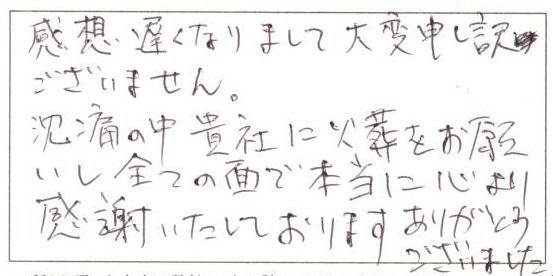 感想遅くなりまして大変申し訳
ございません。
沈痛の中貴社に火葬をお願
いし全ての面で本当に心より
感謝いたしております ありがとう
ございました